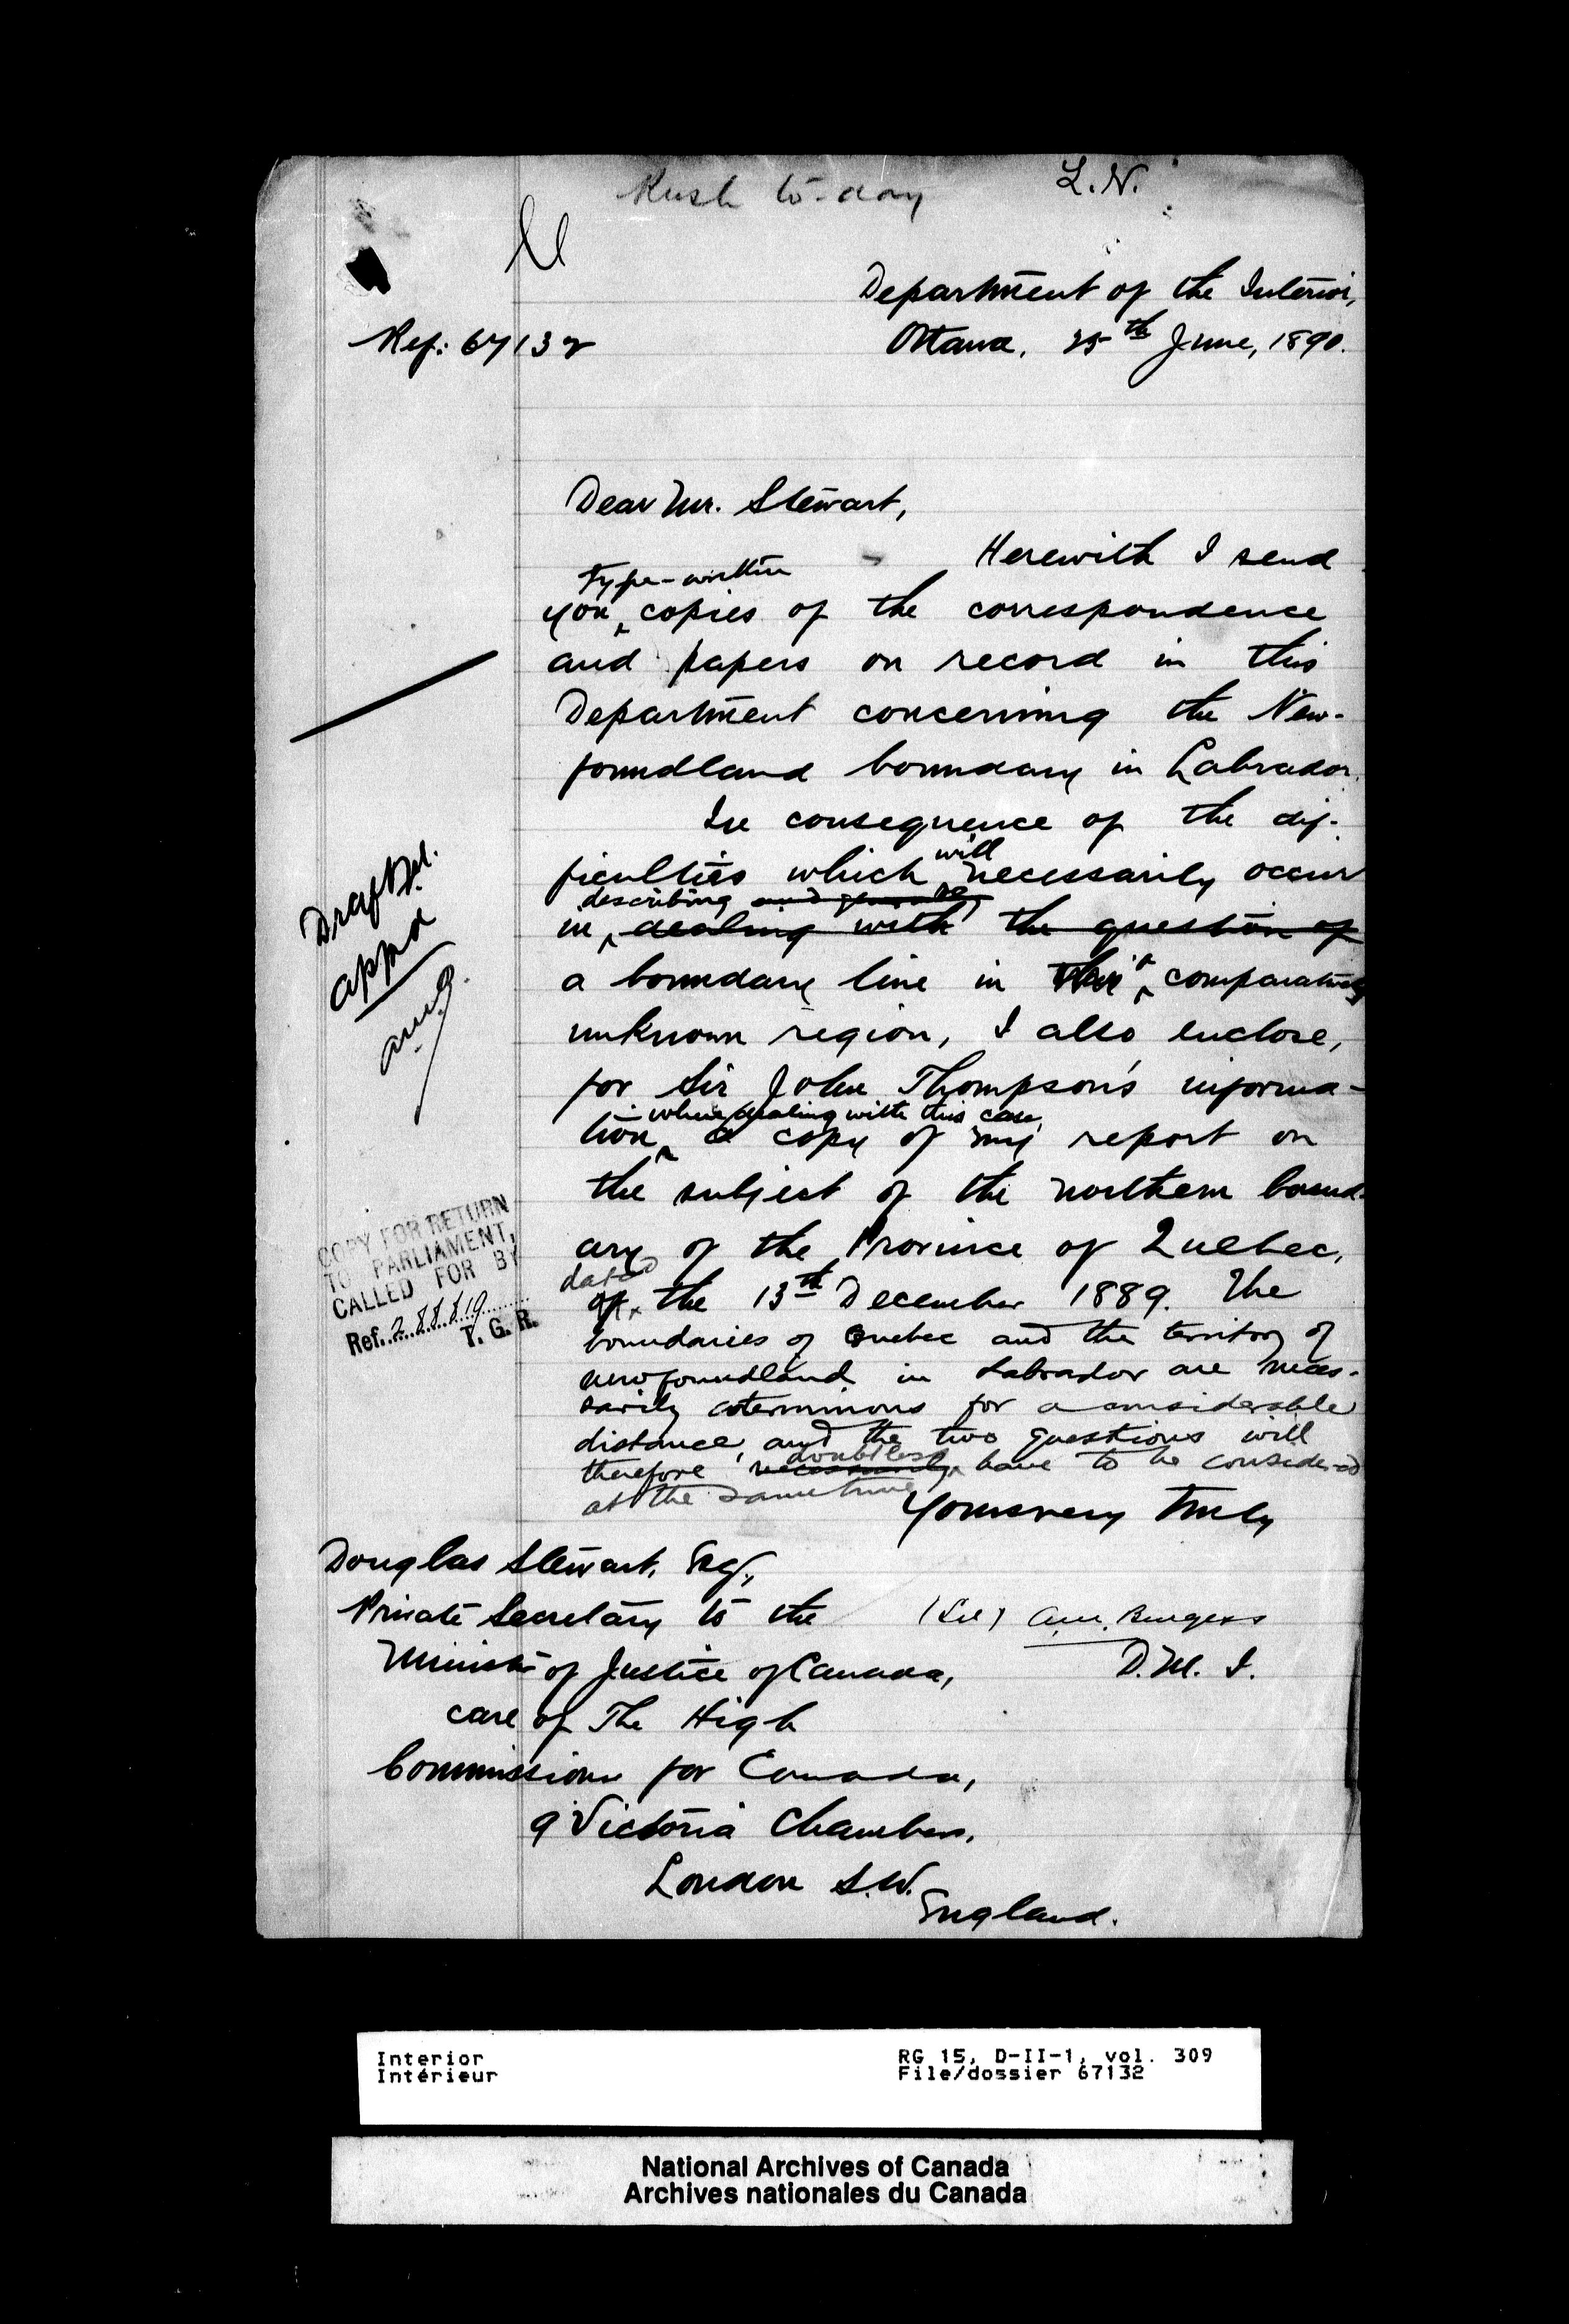 Rush to-day
L. N.
Department of the Interior,
Ref: 67132
Ottawa, 25th June, 1890.
Dear Mr. Stewart,
Herewith I send
type-written
you copies of the correspondence
and papers on record in this
Department concerning the New-
foundland boundary in Labrador.
In consequence of the dif-
will
ficulties which necessarily occur
describing
in dealing with the question of
a boundary line in a comparatively
unknown region, I also enclose,
for Sir John Thompson's informa-
when dealing with this case,
tion a copy of my report on
the subject of the northern bound-
ary of the Province of Quebec,
dated
of the 13th December 1889. The
boundaries of Quebec and the territory of
Newfoundland in Labrador are neces-
sarily coterminous for a considerable
distance, and the two questions will
doubtless
therefore necessarily have to be considered
at the same time
Yours very truly
Draft
appd
COPY FOR RETURN
TO PARLIAMENT,
CALLED FOR BY
Ref. 288819
T. G. R.
Douglas Stewart, Esq.,
Private Secretary to the
(Sd) A.M. Burgess
Minister of Justice of Canada,
D. M. I.
care of The High
Commissioner for Canada,
9 Victoria Chambers,
London S.W.
England.
Interior
Intérieur
RG 15, D-II-1, vol. 309
File/dossier 67132
National Archives of Canada
Archives nationales du Canada